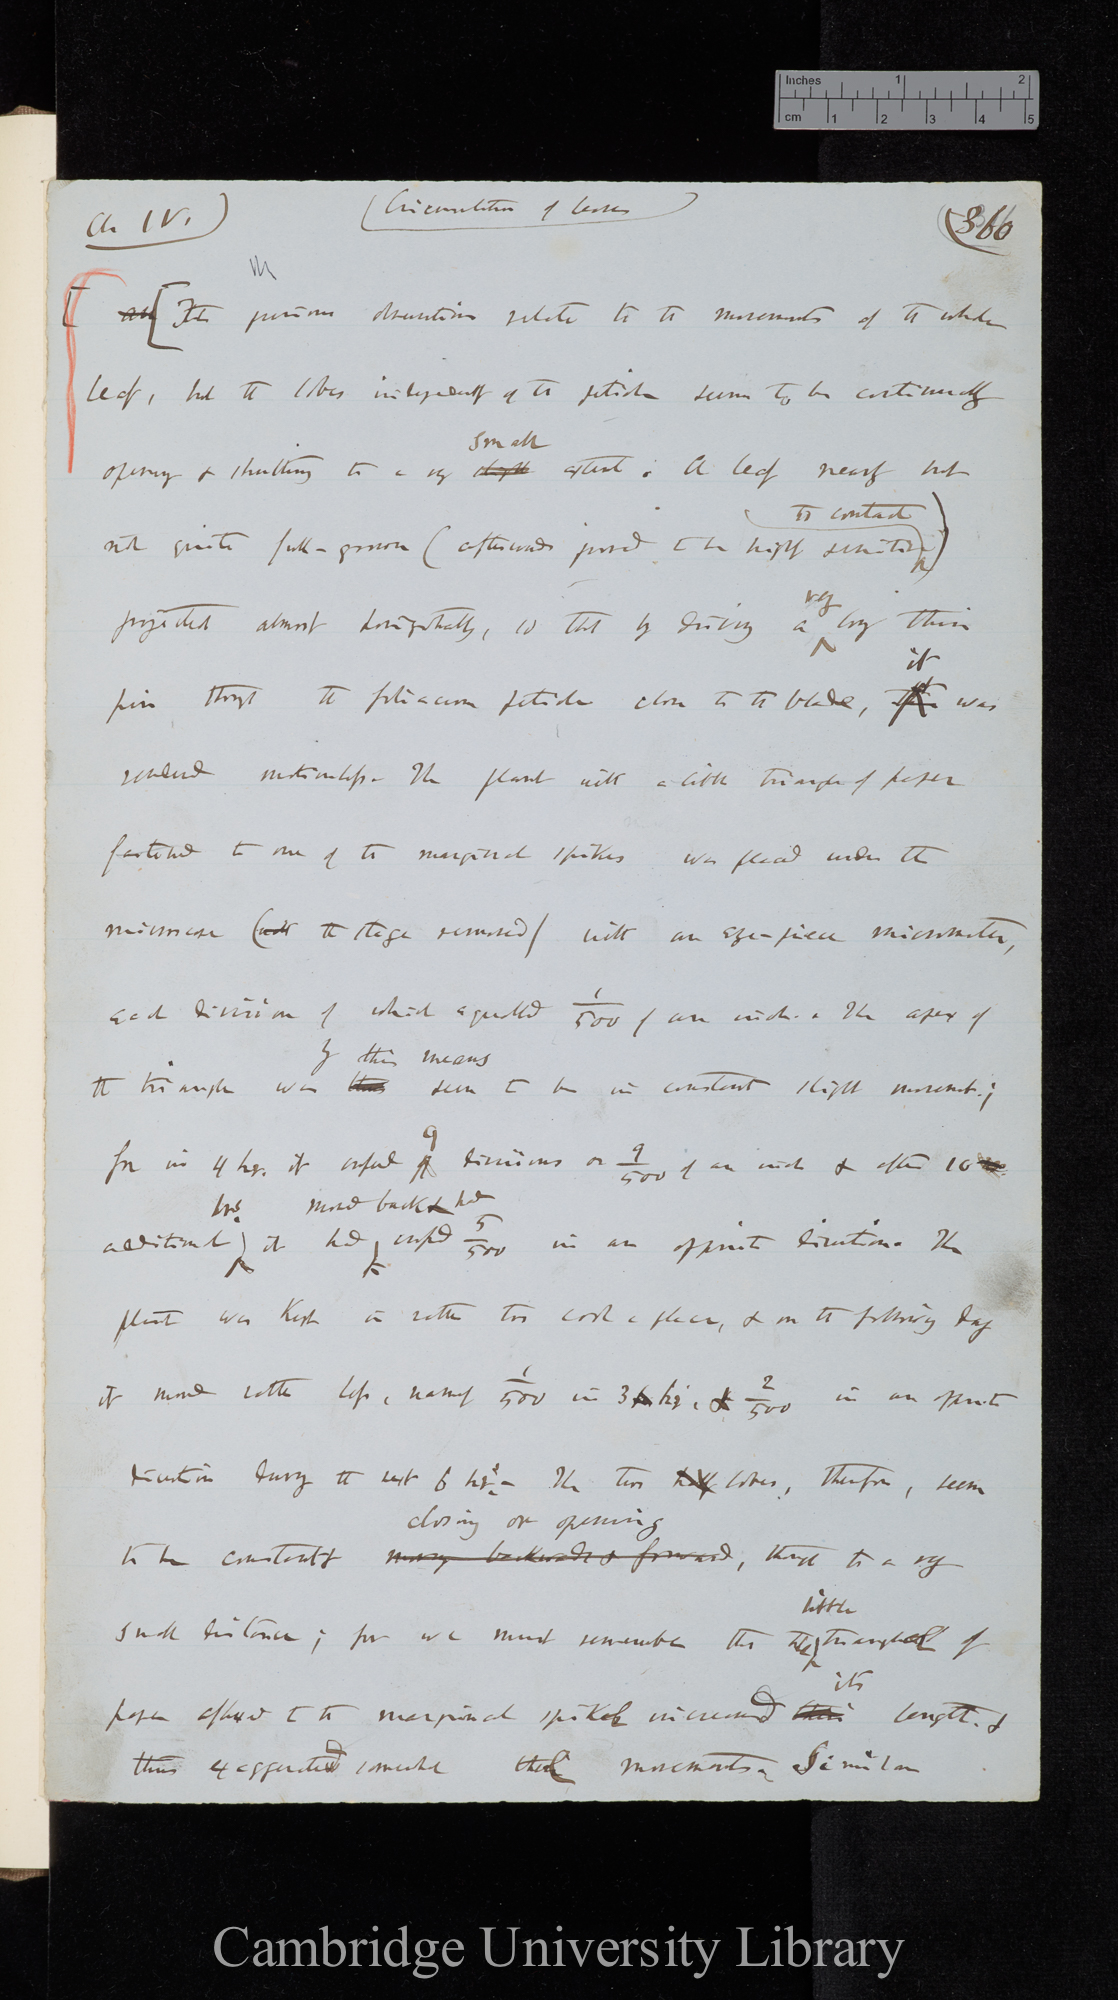 Inches 1 2
cm 1 2 3 4 5
Ch IV.) (Circumnutation of leaves) (366
[The previous observations relate to the movements of the whole
leaf, but the lobes independently of the petiole seem to be continually
small
opening & shutting to a very slight extent. A leaf nearly but
to contact
not quite full-grown (afterwards proved to be highly sensitive)
very
projected almost horizontally, so that by driving a long thin
it
pin through the foliaceous petiole close to the blade, was
rendered motionless. The plant with a little triangle of paper
fastened to one of the marginal spikes was placed under the
microscope (with the stage removed) with an eye-piece micrometer,
each division of which equalled 1/500 of an inch. The apex of
by this means
the triangle was thus seen to be in constant slight movement;
9
for in 4 hrs. it crossed divisions or 9/500 of an inch & after 10
hrs. moved back & had
additional it had crossed 5/500 in an opposite direction. The
plant was kept in rather too cool a place, & on the following day
it moved rather less, namely 1/500 in 3 hrs, & 2/500 in an opposite
direction during the next 6 hrs. The two half lobes, therefore, seem
closing or opening
to be constantly moving backwards & forward, though to a very
little
small distance; for we must remember that the triangle of
its
paper affixed to the marginal spike increased their length &
thus exaggerated somewhat the movements. Similar
Cambridge University Library